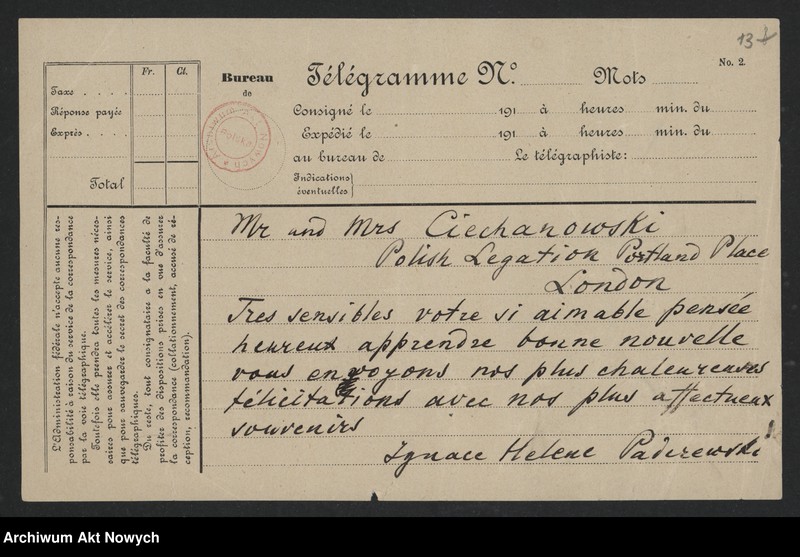 134
No. 2.
Fr. Ct.
Taxe . . . .
Réponse payée
Exprès . . . .
Total
Bureau
de
ARCHIWUM AKT NOWYCH
Télégramme No. Mots
Consigné le 191 à heures min. du
Expédié le 191 à heures min. du
au bureau de Le télégraphiste:
Indications
éventuelles
L'Administration fédérale n'accepte aucune res-
ponsabilité à raison du service de la correspondance
par la voie télégraphique.
Toutefois elle prendra toutes les mesures néces-
saires pour assurer et accélérer le service, ainsi
que pour sauvegarder le secret des correspondances
télégraphiques.
Du reste, tout consignataire a la faculté de
profiter des dispositions prises en vue d'assurer
la correspondance (collationnement, accusé de ré-
ception, recommandation).
Mr and Mrs Ciechanowski
Polish Legation Portland Place
London
Tres sensibles votre si aimable pensée
heureux apprendre bonne nouvelle
vous envoyons nos plus chaleureuses
félicitations avec nos plus affectueux
souvenirs
Ignace Helene Paderewski
Archiwum Akt Nowych